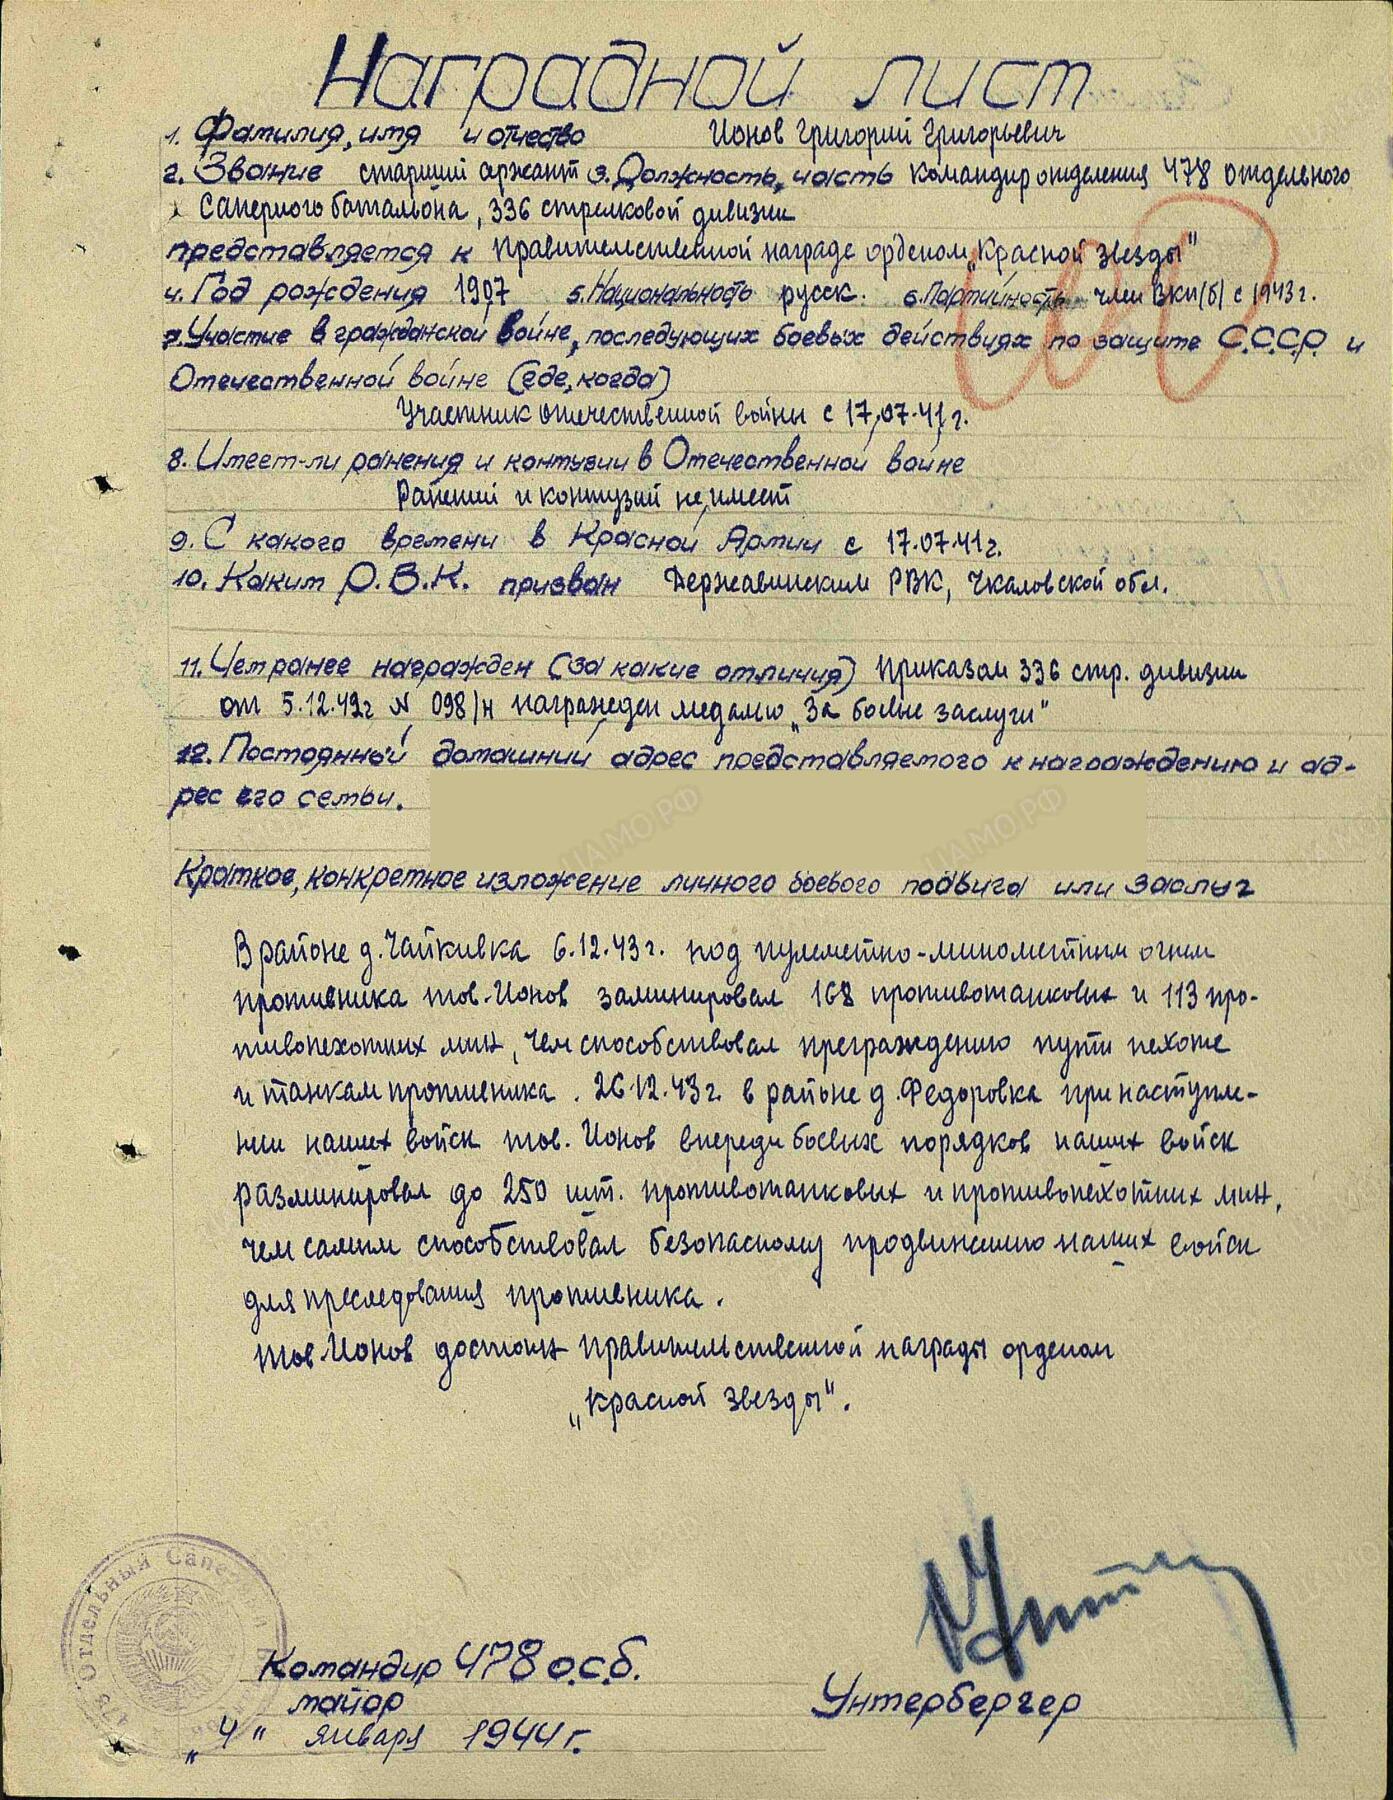 Наградной лист
1. Фамилия, имя и отчество Ионов Григорий Григорьевич
2. Звание старший сржант 3. Должность, часть командир отделения 478 отдельного
Саперного батальона, 336 стрелковой дивизии
представляется к правительственной награде орденом „Красной звезды"
4. Год рождения 1907 5. Национальность русск. 6. Партийность член ВКП(б) с 1943г.
7. Участие в гражданской войне, последующих боевых действиях по защите С.С.С.Р. и
Отечественной войне (где, когда)
Участник отечественной войны с 17.07.41г.
8. Имеет-ли ранения и контузии в Отечественной войне
Ранений и контузий не имеет
9. С какого времени в Красной Армии с 17.07.41г.
10. Каким Р.В.К. призван Державинским РВК, Чкаловской обл.
11. Чем ранее награжден (за какие отличия) приказом 336 стр. дивизии
от 5.12.43г N 098/н награжден медалью „За боевые заслуги"
12. Постоянный домашний адрес представляемого к награждению и ад-
рес его семьи.
Краткое, конкретное изложение личного боевого подвига или заслуг
В районе д. Чайкивка 6.12.43г. под пулеметно-минометным огнем
противника тов. Ионов заминировал 168 противотанковых и 113 про-
тивопехотных мин, чем способствовал преграждению пути пехоте
и танкам противника. 26.12.43г. в районе д. Федоровка при наступле-
нии наших войск тов. Ионов впереди боевых порядков наших войск
разминировал до 250 шт. противотанковых и противопехотных мин,
чем самым способствовал безопасному продвижению наших войск
для преследования противника.
Тов. Ионов достоин правительственной награды орденом
„Красной звезды".
478 Отдельный Саперный
Командир 478 о.с.б.
майор
Унтербергер
„4" января 1944г.
ЦАМО РФ